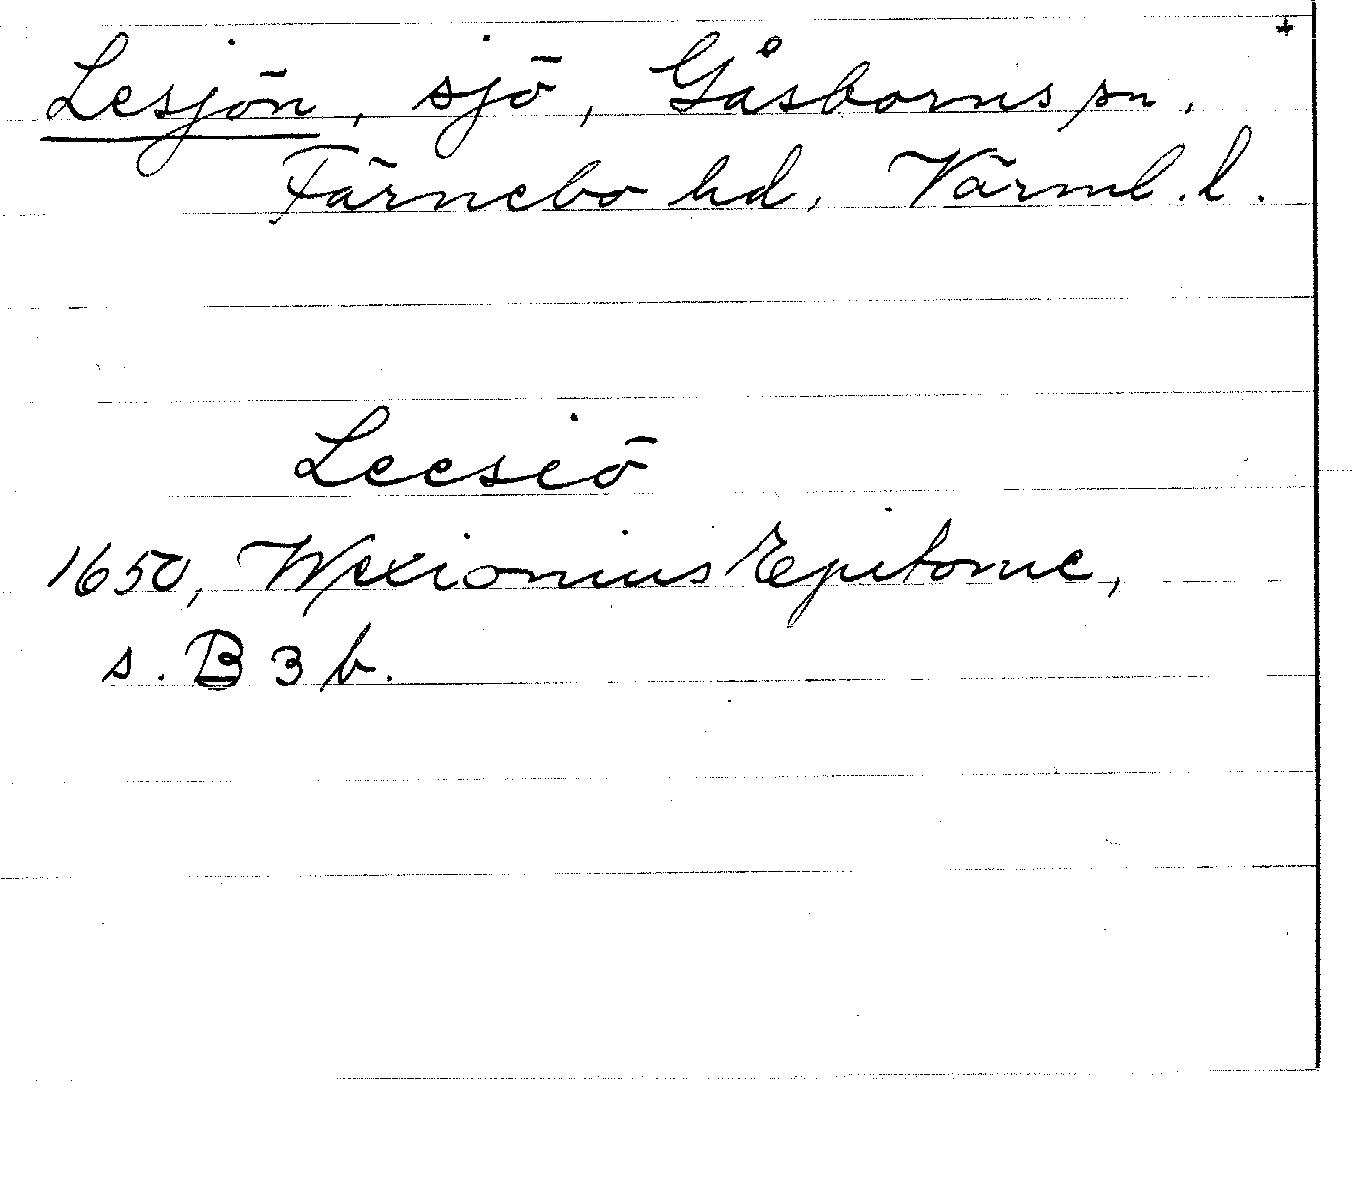 Lesjön, sjö, Gåsborns sn,
Färnebo hd, Värml. l.
Leesiö
1650, Wexionius Epitome,
s. B 3 b.